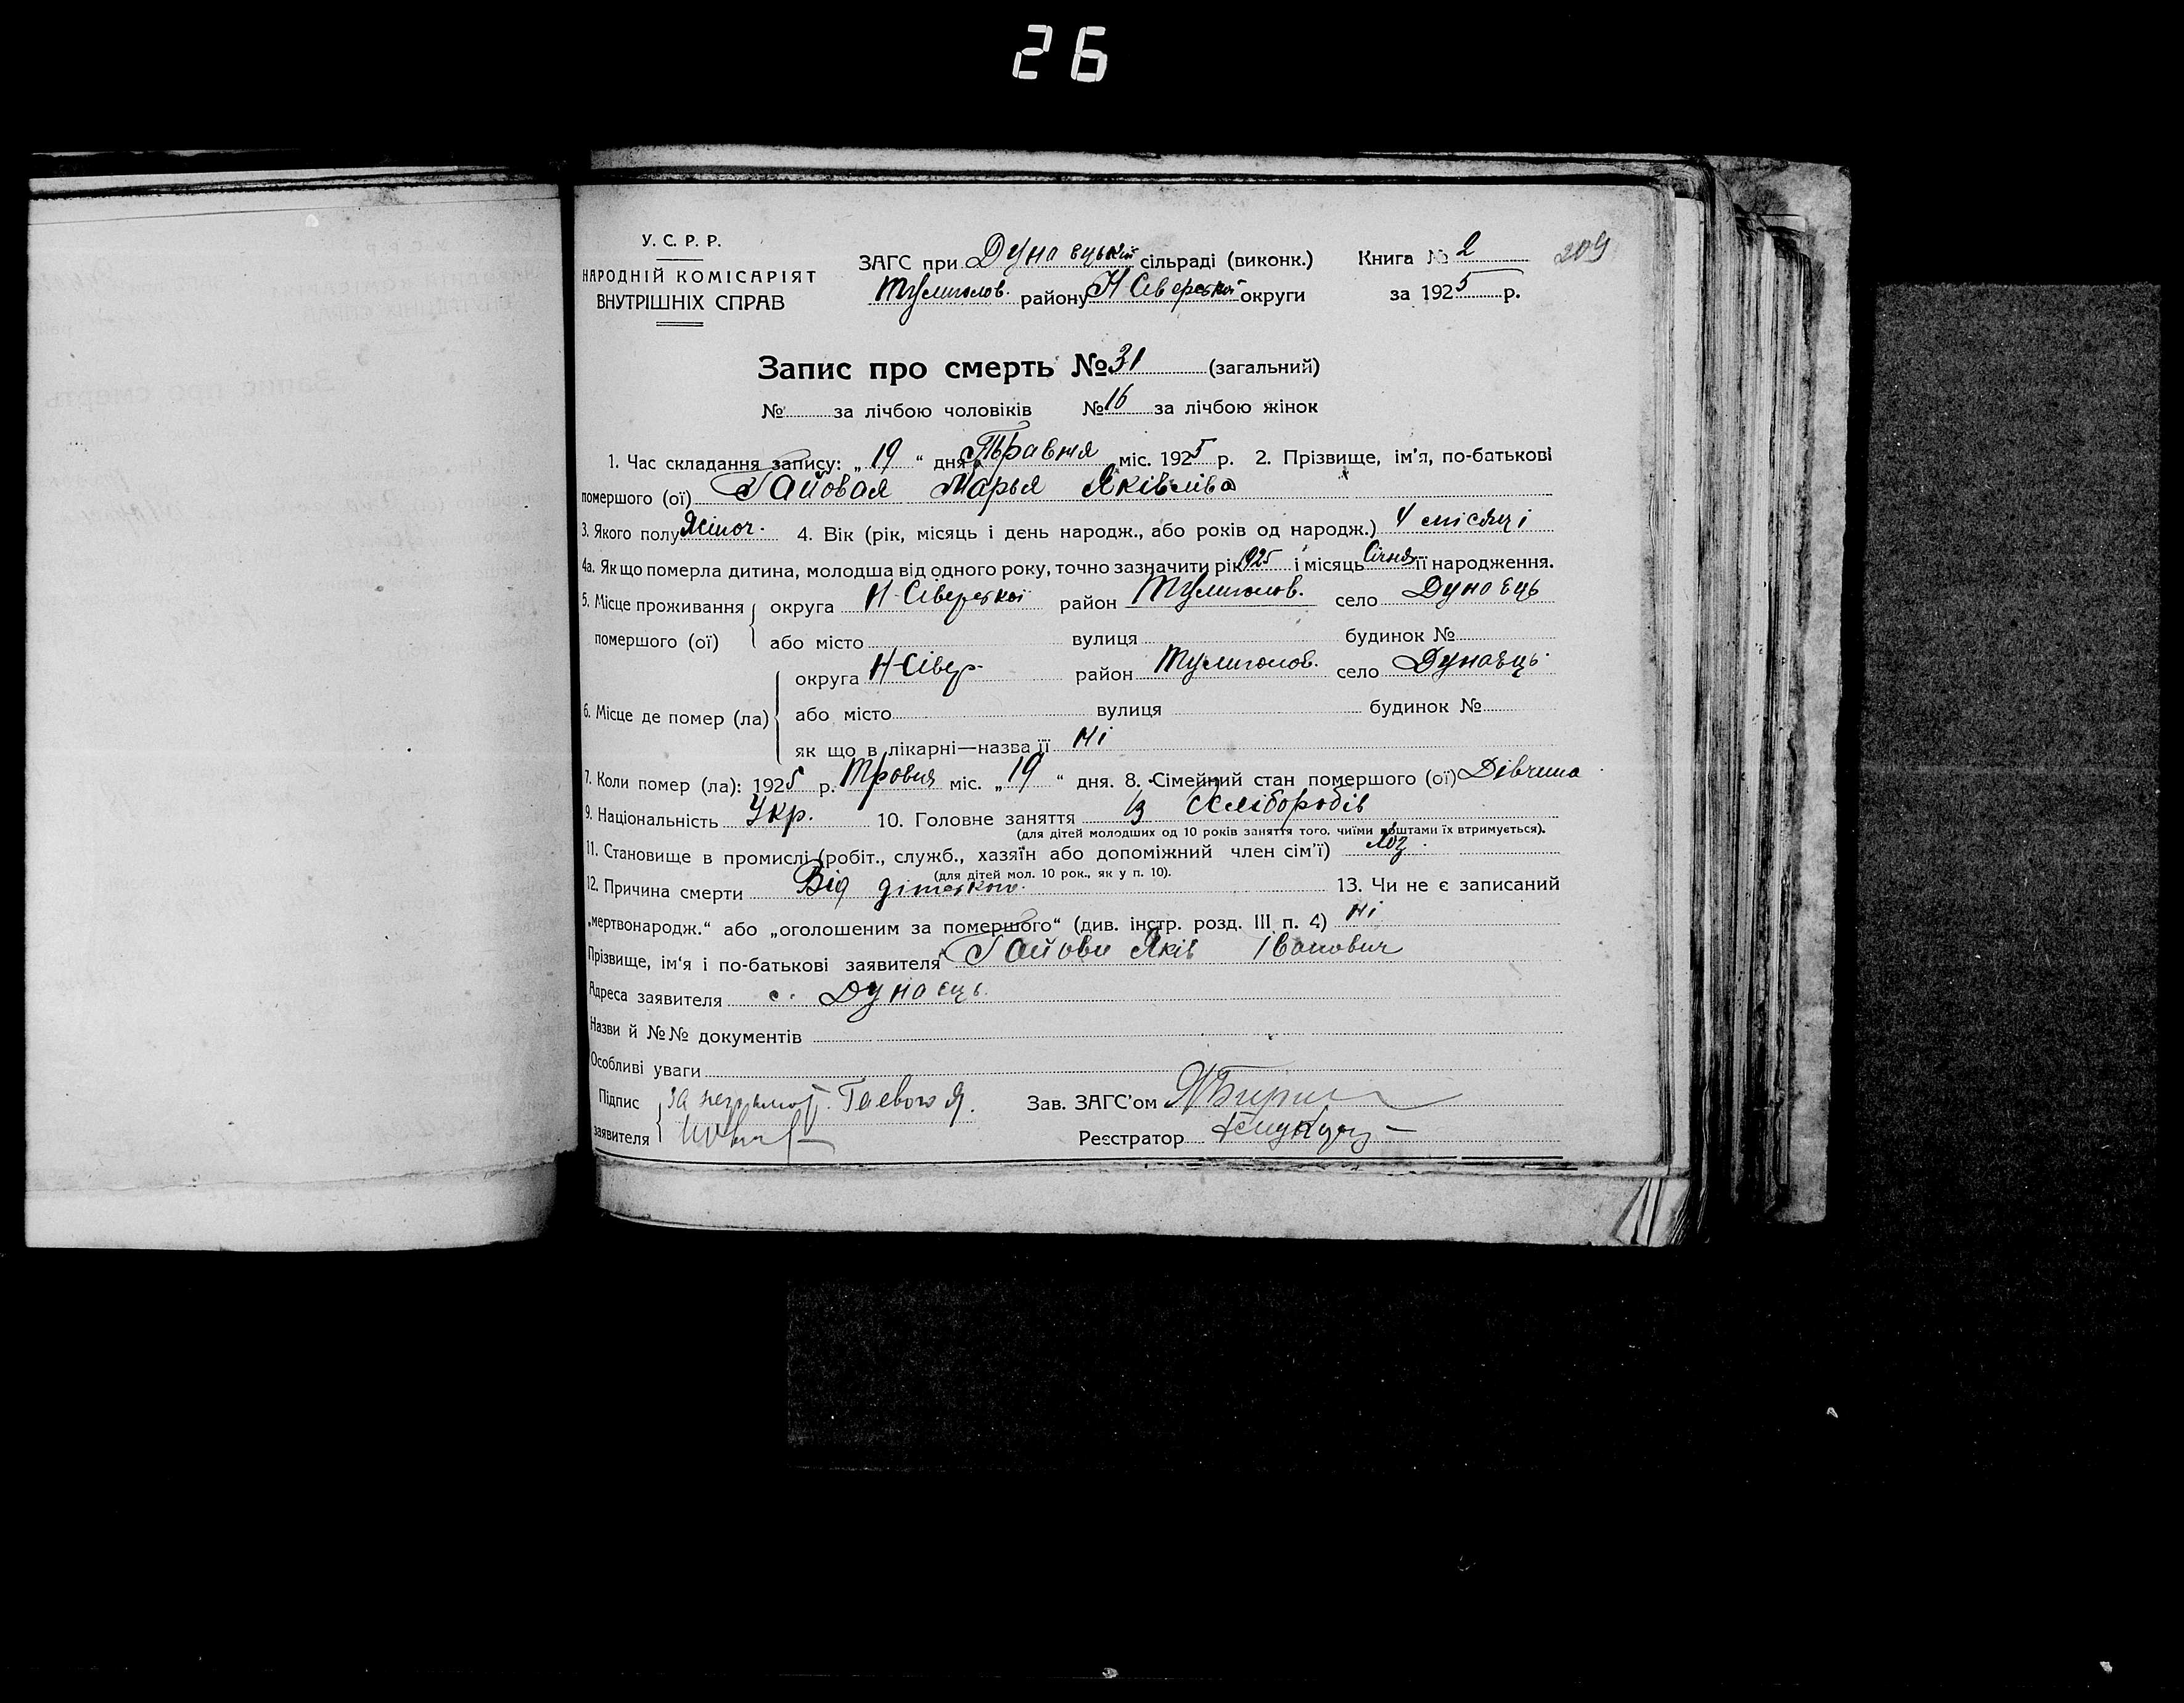 26
У. С. Р. Р.
НАРОДНІЙ КОМІСАРІЯТ
ВНУТРІШНІХ СПРАВ
ЗАГС при Дунаецькій сільраді (виконк.)
Тулиголов. району Н Сіверської округи
Книга № 2
за 1925 р.
209
Запис про смерть №31 (загальний)
№ за лічбою чоловіків №16 за лічбою жінок
1. Час складання запису: „19“ дня Травня міс. 1925 р. 2. Прізвище, ім'я, по-батькові
помершого (ої) Гайовая Марья Яківліва
3. Якого полу Жіноч. 4. Вік (рік, місяць і день народж., або років од народж.) 4 місяці
4а. Якщо померла дитина, молодша від одного року, точно зазначити рік 1925 і місяць Січня її народження.
5. Місце проживання помершого (ої) округа Н-Сіверської район Тулиголов. село Дунаець
або місто вулиця будинок №
6. Місце де помер (ла) округа Н-Сівер. район Тулиголов. село Дунаець.
або місто вулиця будинок №
як що в лікарні—назва її Ні
7. Коли помер (ла): 1925 р. Тровня міс. „19“ дня. 8. Сімейний стан помершого (ої) Дівчина
9. Національність Укр. 10. Головне заняття із Хліборобів
(для дітей молодших од 10 років заняття того, чиїми коштами їх втримується).
11. Становище в промислі (робіт., служб., хазяїн або допоміжний член сім'ї) Хоз.
(для дітей мол. 10 рок., як у п. 10).
12. Причина смерти Від дітською. 13. Чи не є записаний
„мертвонародж.“ або „оголошеним за помершого“ (див. інстр. розд. III п. 4) Ні
Прізвище, ім'я і по-батькові заявителя Гайови Яків Іванович
Адреса заявителя с. Дунаець.
Назви й №№ документів
Особливі уваги
Підпис заявителя за неграмот. Гаевого Я.
Зав. ЗАГС'ом
Реєстратор